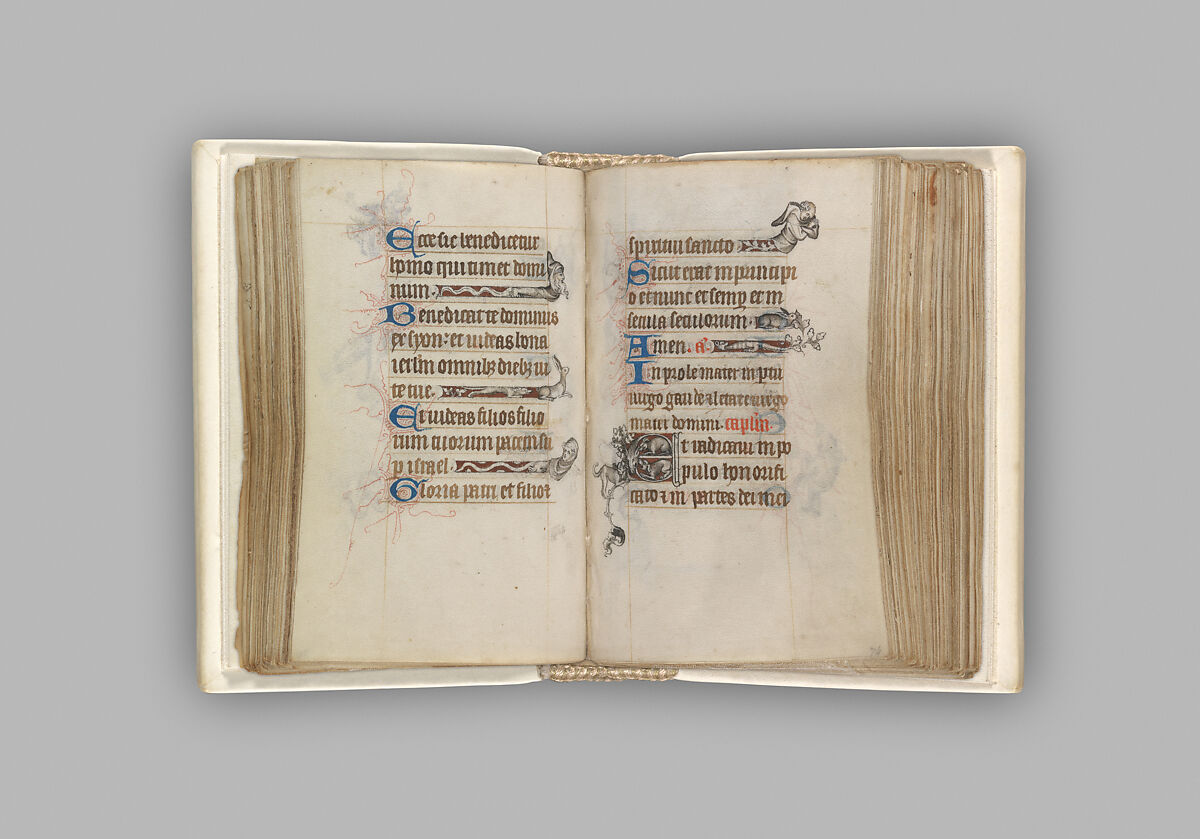 Ecce sic benedicetur
homo qui timet domi
num.
Benedicat te dominus
ex syon: et uideas bona
ierlm omnibz diebz ui
te tue.
Et uideas filios filio
rum tuorum pacem su
p israel.
Gloria patri et filio
spiritui sancto
Sicut erat in principi
o et nunc et semp et in
secula seculorum.
Amen. a
In prole mater in ptu
uirgo gaude
mater domini. caplm.
Et radicaui in po
pulo honorifi
cato ⁊ in partes dei mei